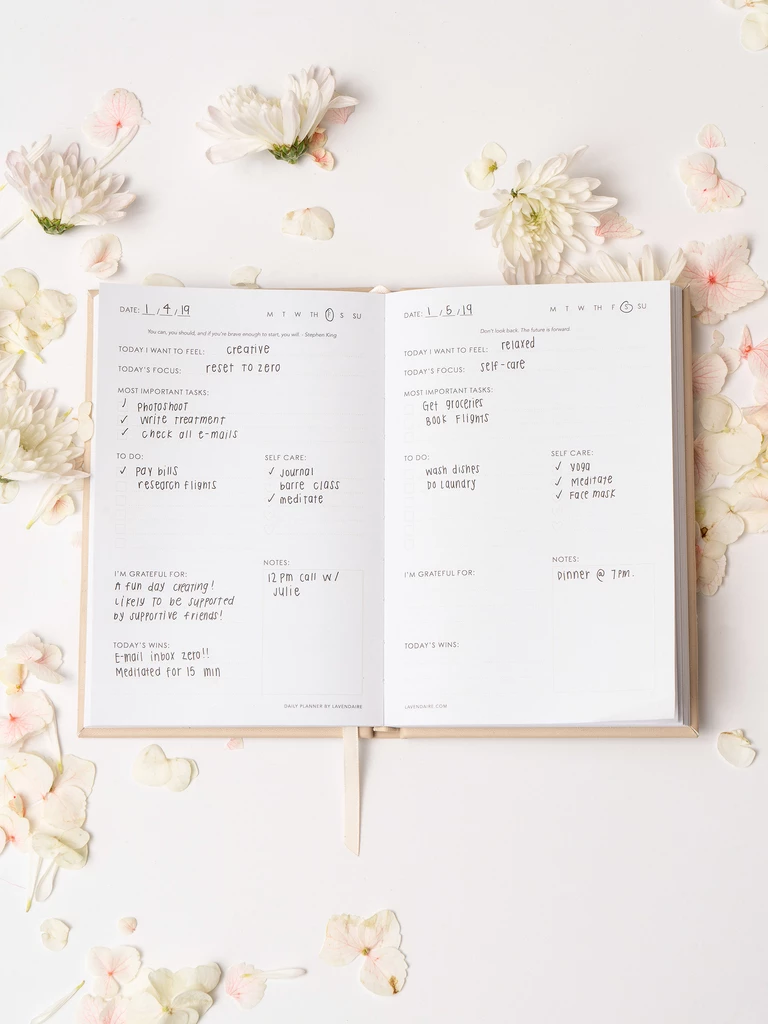 DATE: 1/4/19 M T W TH F S SU
You can, you should, and if you're brave enough to start, you will. - Stephen King
TODAY I WANT TO FEEL: creative
TODAY'S FOCUS: reset to zero
MOST IMPORTANT TASKS:
✓ Photoshoot
✓ Write Treatment
✓ Check all e-mails
TO DO:
✓ Pay bills
research flights
SELF CARE:
✓ Journal
barre class
✓ meditate
I'M GRATEFUL FOR:
A fun day creating!
Likely to be supported
by supportive friends!
NOTES:
12pm call w/
Julie
TODAY'S WINS:
E-mail inbox zero!!
Meditated for 15 min
DAILY PLANNER BY LAVENDAIRE
DATE: 1/5/19 M T W TH F S SU
Don't look back. The future is forward.
TODAY I WANT TO FEEL: relaxed
TODAY'S FOCUS: self-care
MOST IMPORTANT TASKS:
Get groceries
Book Flights
TO DO:
Wash dishes
Do laundry
SELF CARE:
✓ yoga
✓ Meditate
✓ Face mask
I'M GRATEFUL FOR:
NOTES:
Dinner @ 7pm.
TODAY'S WINS:
LAVENDAIRE.COM